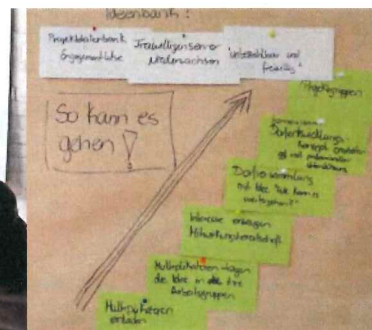 Ideenbank:
Projektdatenbank
Engagementlotse
Freiwilligenserver
Niedersachsen
"unbezahlbar und
freiwillig"
So kann es
gehen!
Projektgruppen
Dorfentwicklungs-
Konzept erarbeiten
mit professioneller
Dorfversammlung
mit Idee "Wie kann es
weitergehen?"
Interesse erfragen
Mitwirkungsbereitschaft
Multiplikatoren tragen
die Idee in die
Arbeitsgruppen
Multiplikatoren
einladen